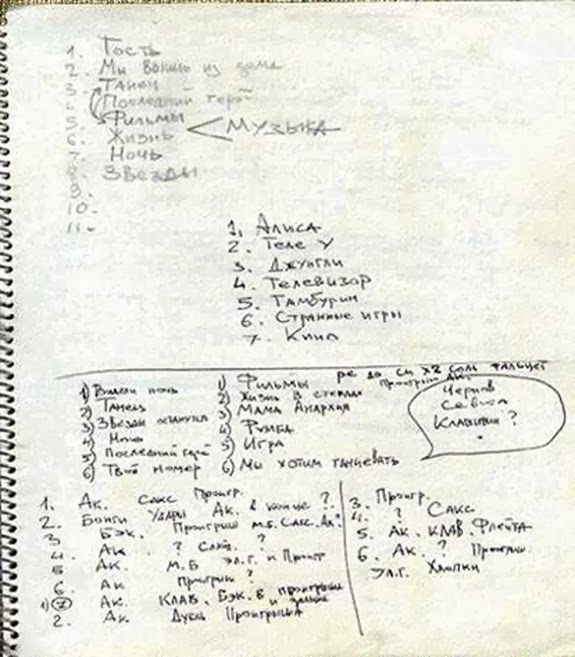 1. Гость
2. Мы вышли из дома
3. Танец
4. Последний герой
5. Фильмы
6. Жизнь
МУЗЫКА
7. Ночь
8. Звезды
9.
10.
11.
1. Алиса
2. Теле У
3. Джунгли
4. Телевизор
5. Тамбурин
6. Странные игры
7. Кино
ре до си х2 соль фальцет
1) Видели ночь
2) Танец
3) Звезды останутся
4) Ночь
5) Последний герой
6) Твой номер
1) Фильмы
2) Жизнь в стеклах
3) Мама Анархия
4) Румба
5) Игра
6) Мы хотим танцевать
Чернов
Клавишник?
1. Ак. Сакс Проигр.
2. Бонги Удары Ак. в конце ?
3 Бэк. Проигрыш м.б. Сакс. Ак.
4. Ак ? Сакс. ?
5 Ак. М.Б Эл.Г. и Проигр
6. Ак Проигрыш ?
1) 7 Ак. Клав. Бэк. в проигрыше и
2. Ак. Дубль Проигрыша
3. Проигр.
4. ? Сакс.
5. Ак. Клав. Флейта
6. Ак. ? Проигрыш
Эл.Г. Хлопки